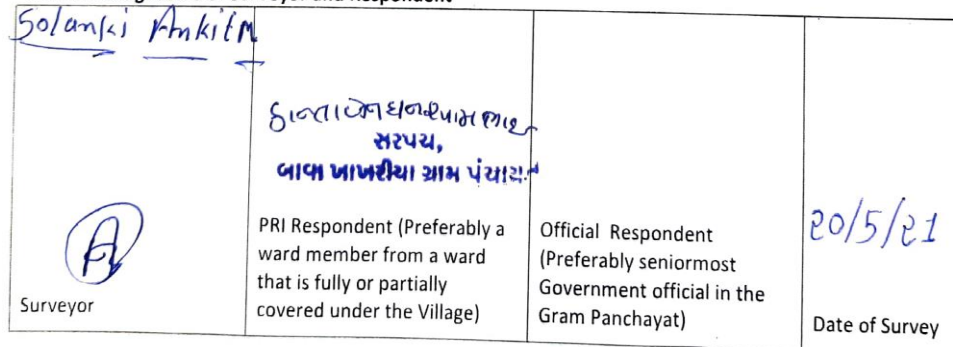 Solanki Ankit M
કાન્તાબેન ઘનશ્યામભાઇ
સરપચ,
બાવા ખાખરીયા ગ્રામ પંચાયત
20/5/21
Surveyor
PRI Respondent (Preferably a
ward member from a ward
that is fully or partially
covered under the Village)
Official Respondent
(Preferably seniormost
Government official in the
Gram Panchayat)
Date of Survey